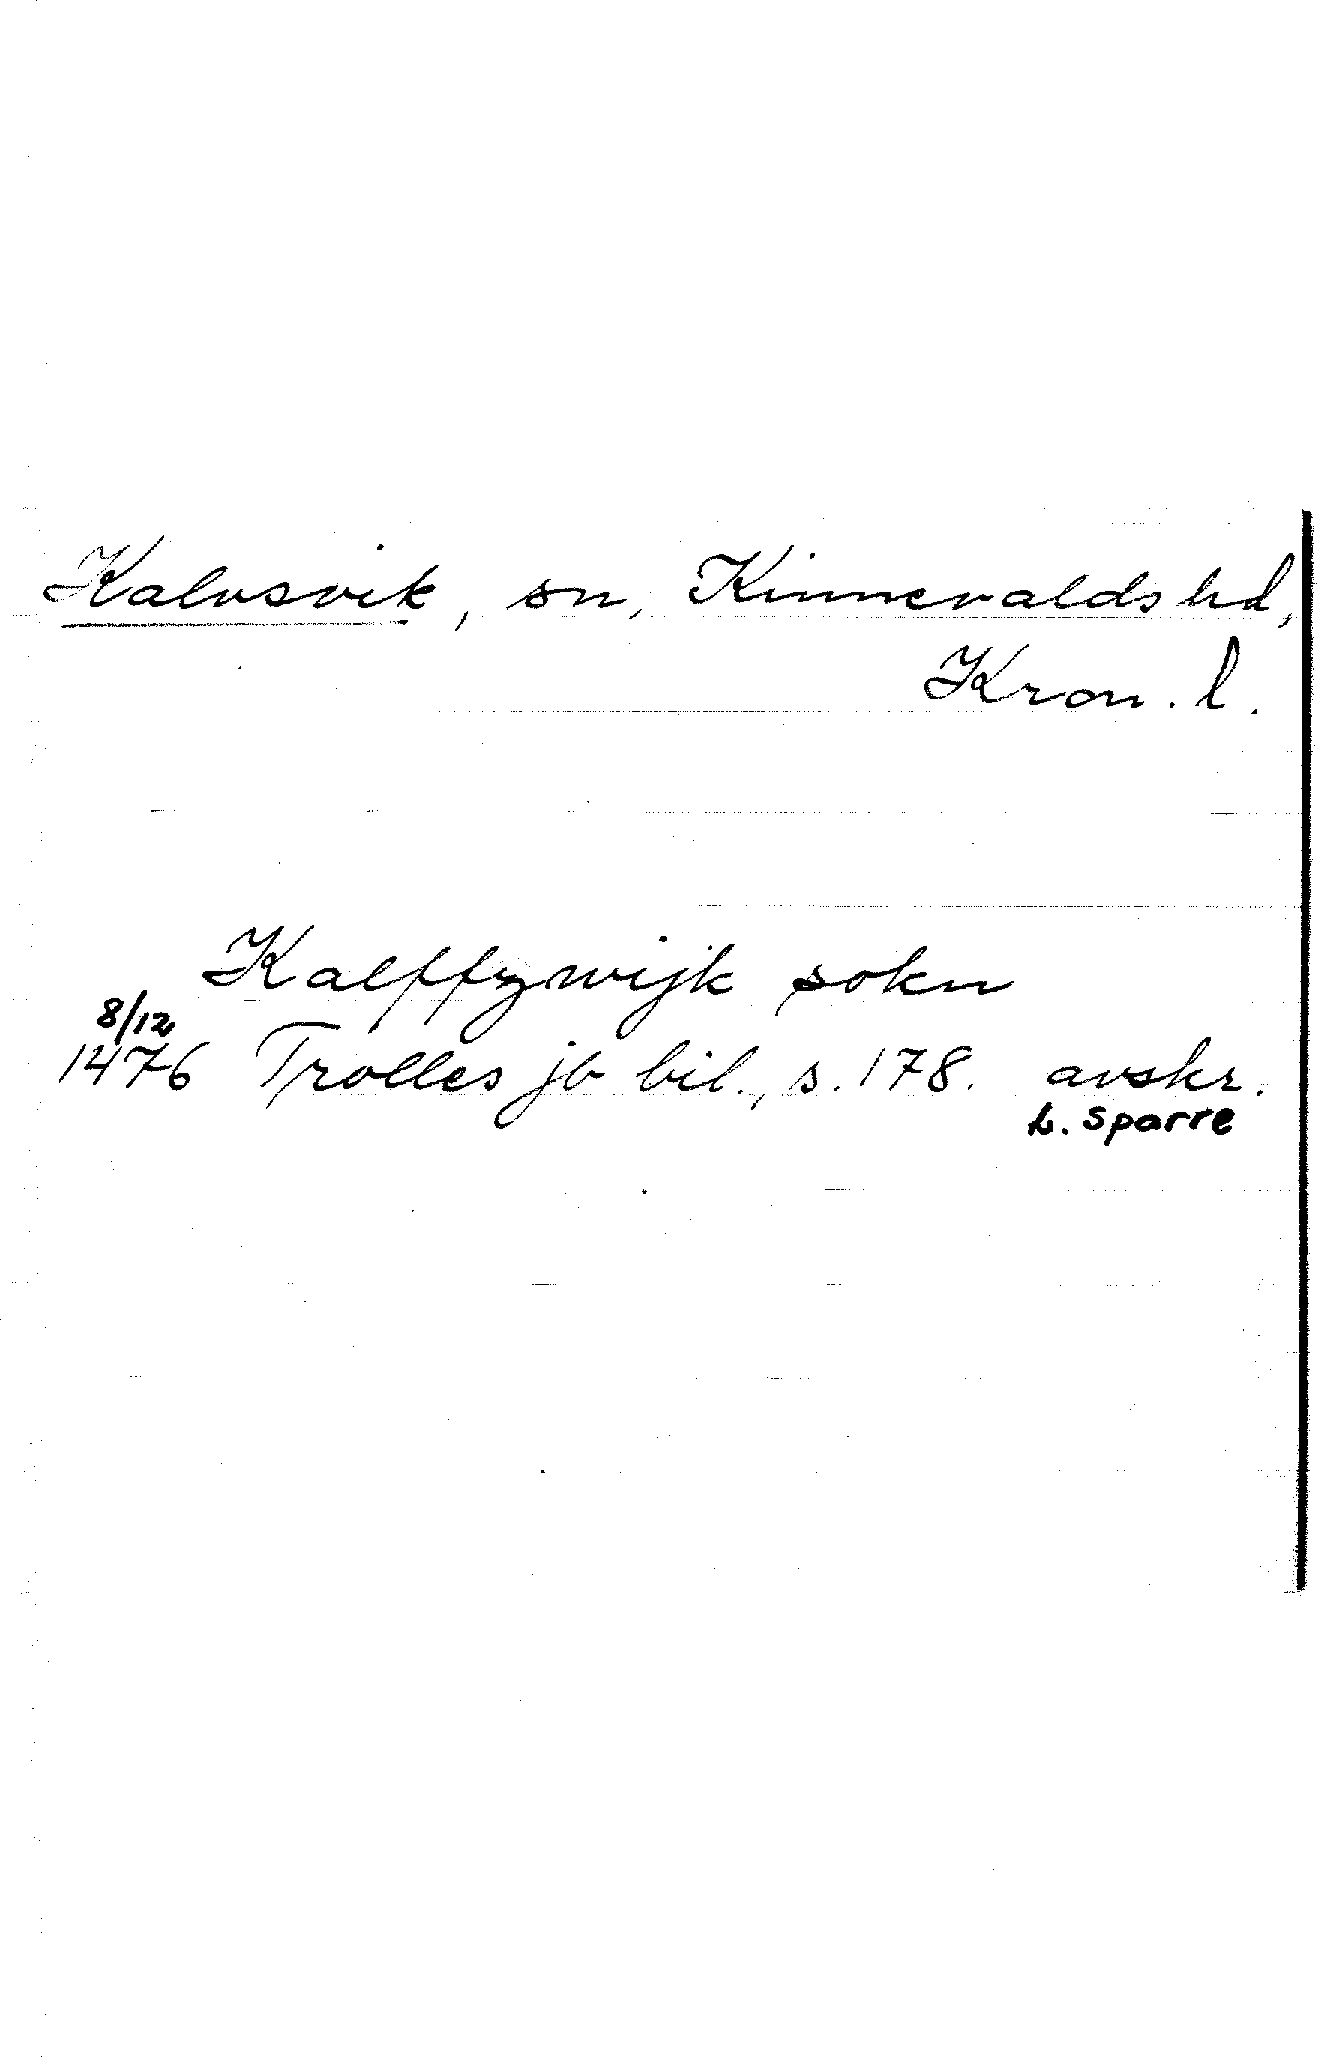 Kalvsvik, sn, Kinnevalds hd,
Kron. l.
Kalffzwijk sokn
8/12
1476 Trolles jb bil., s. 178. avskr.
L. Sparre